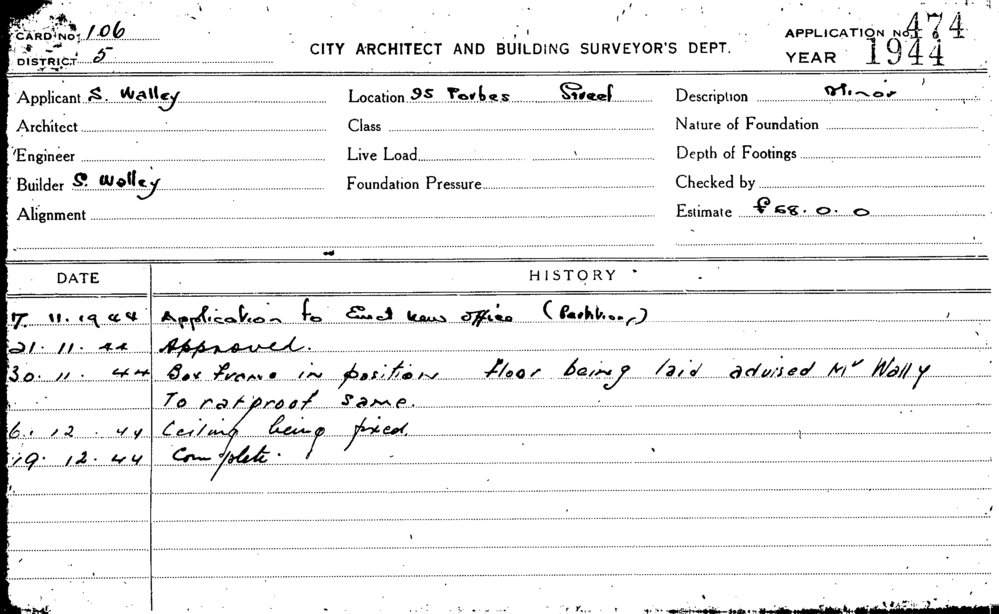 CARD No. 106
DISTRICT 5
CITY ARCHITECT AND BUILDING SURVEYOR'S DEPT.
APPLICATION No. 474
YEAR 1944
Applicant S. Walley
Location 95 Forbes Street
Description Minor
Architect
Class
Nature of Foundation
Engineer
Live Load
Depth of Footings
Builder S. Walley
Foundation Pressure
Checked by
Alignment
Estimate £68.0.0
DATE HISTORY
7. 11. 1944 Application to Erect new office (Partitions)
21. 11. 44 Approved.
30. 11. 44 Box frame in position Floor being laid advised Mr Wally
To ratproof same.
6. 12. 44 Ceiling being fixed.
19. 12. 44 Complete.